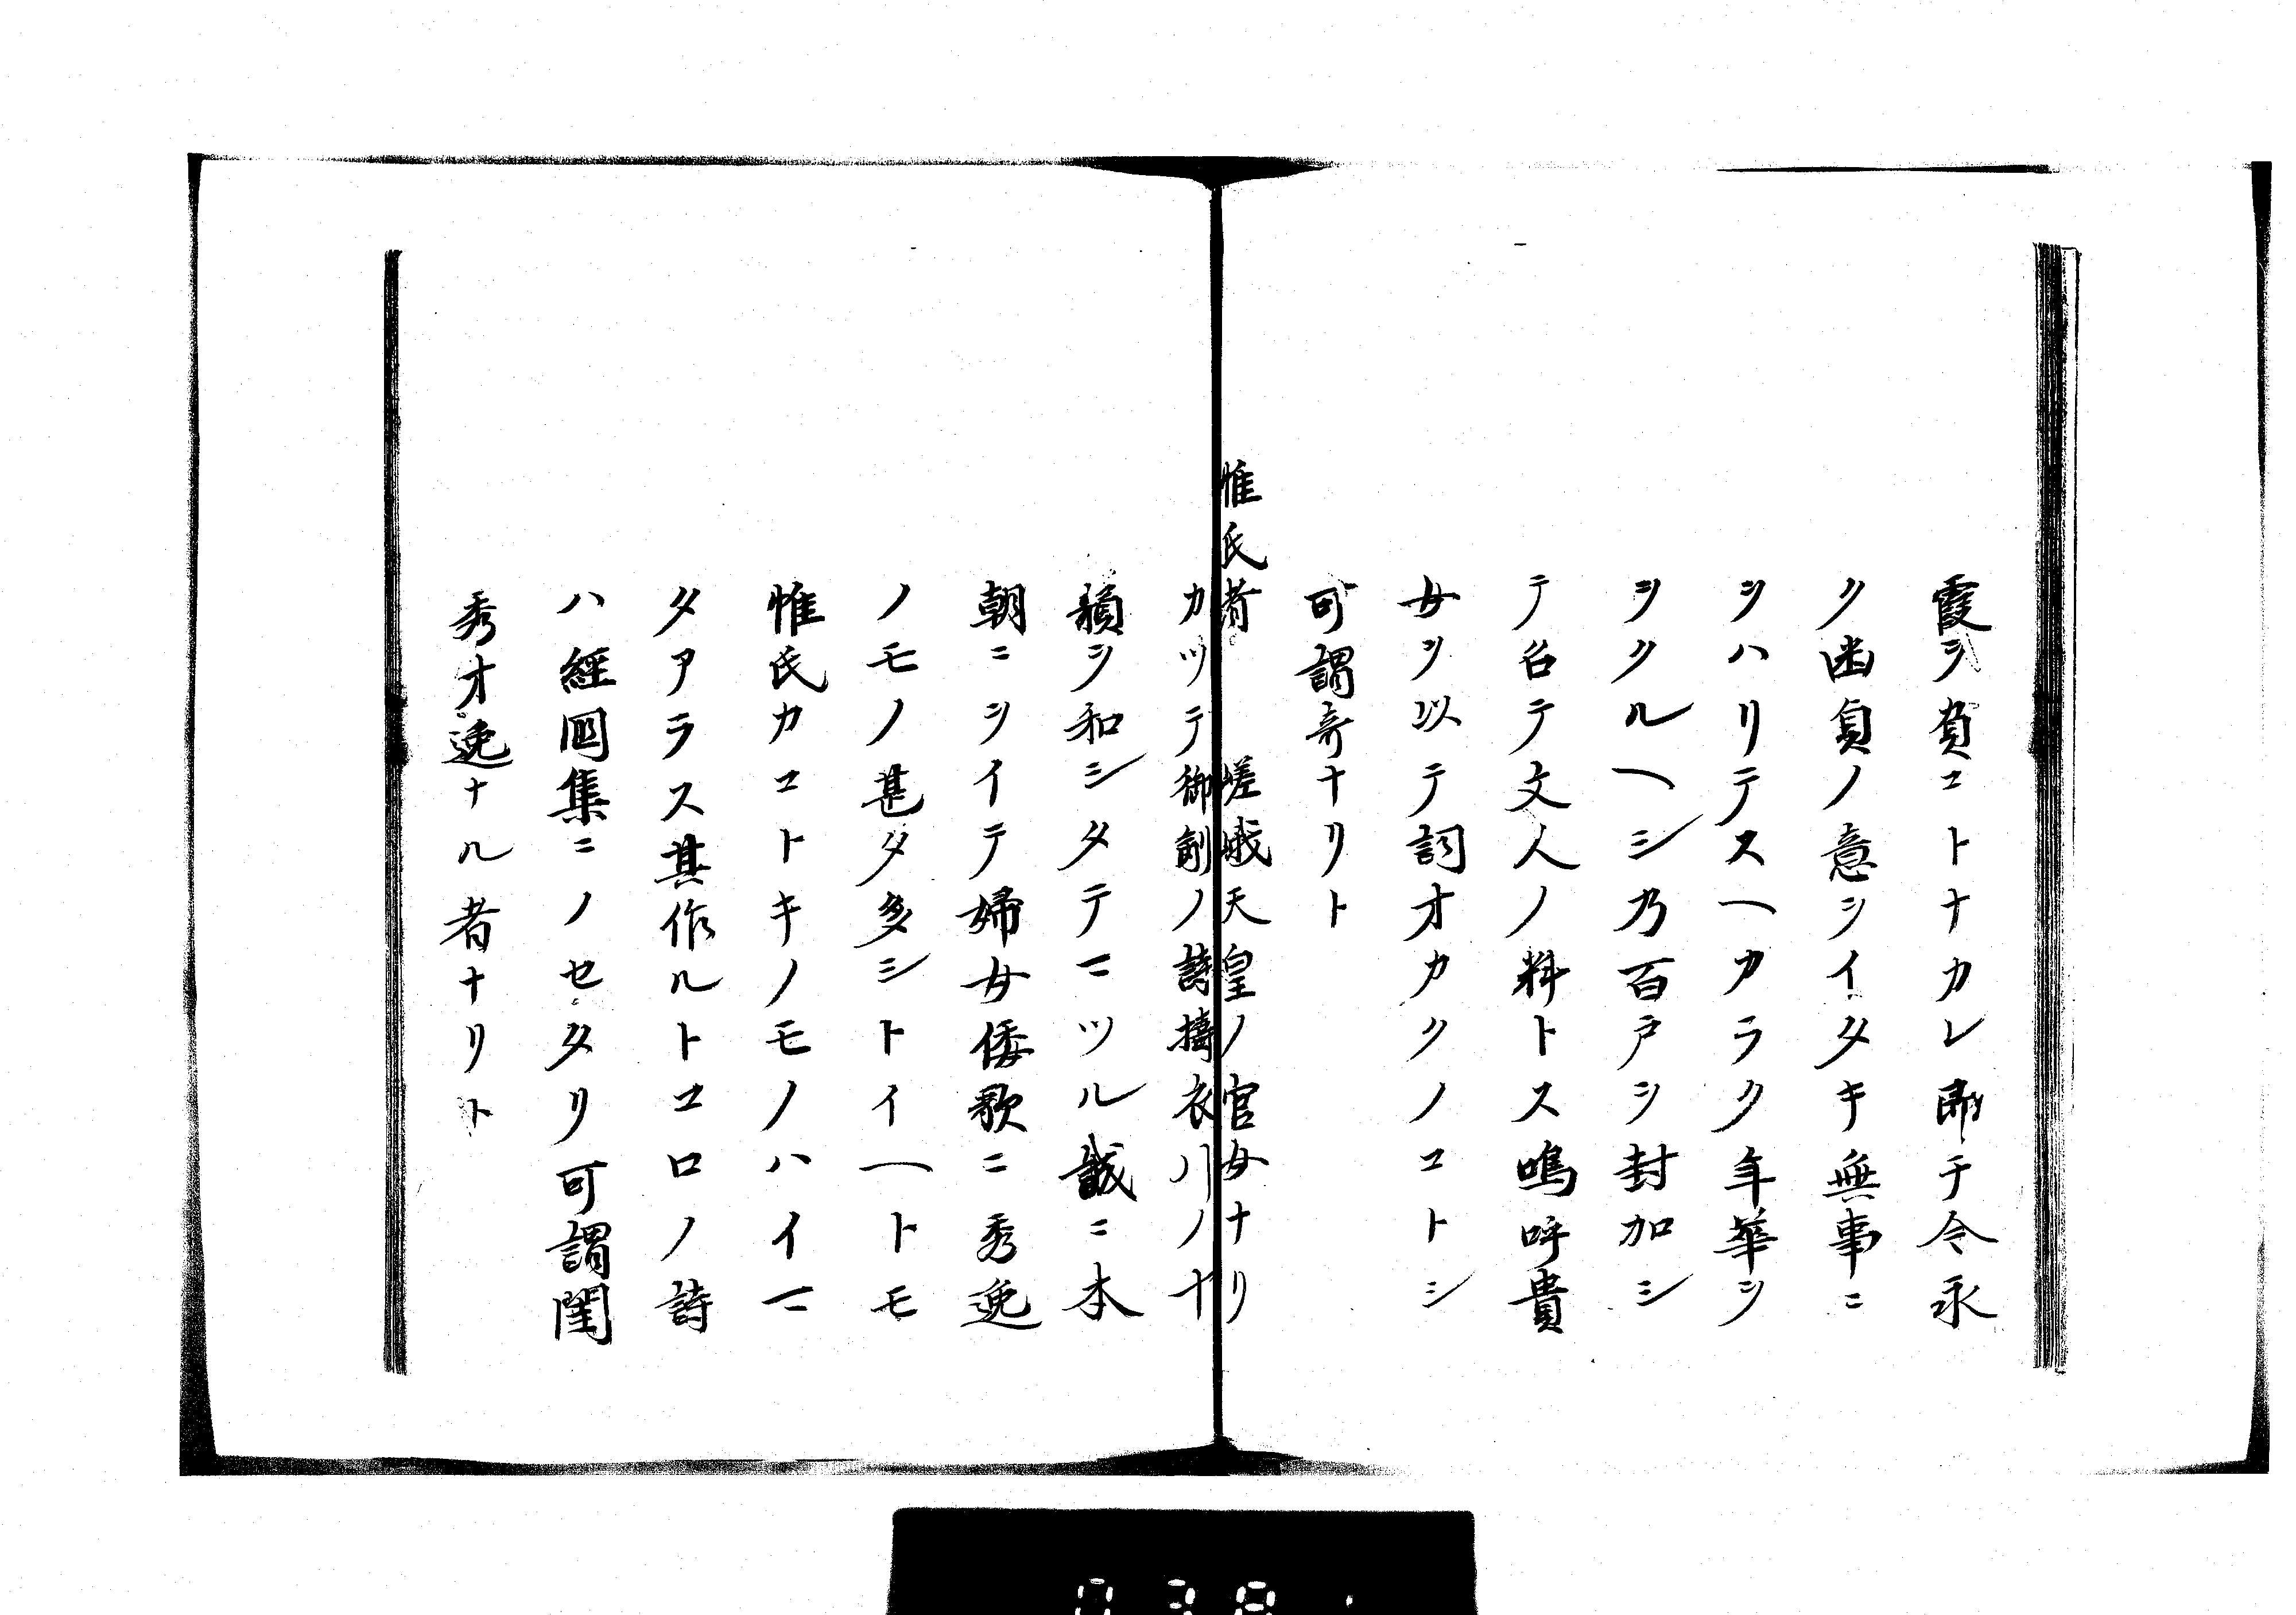 霞ヲ負コトナカレ即チ令永
ク幽貞ノ意ヲイタキ無事ニ
ヲハリテスヘカラク年華ヲ
ヲクルヘシ乃百戸ヲ封加シ
テ召テ文人ノ料トス嗚呼貴
女ヲ以テ詞才カクノコトシ
可謂奇ナリト
惟氏者 嵯峨天皇ノ官女ナリ
カツテ御創ノ詩擣衣ノ
韻ヲ和シタテマツル誠ニ本
朝ニヲイテ婦女倭歌ニ秀逸
ノモノ甚タ多シトイヘトモ
惟氏カコトキノモノハイマ
タアラス其作ルトコロノ詩
ハ經國集ニノセタリ可謂閨
秀才逸ナル者ナリト